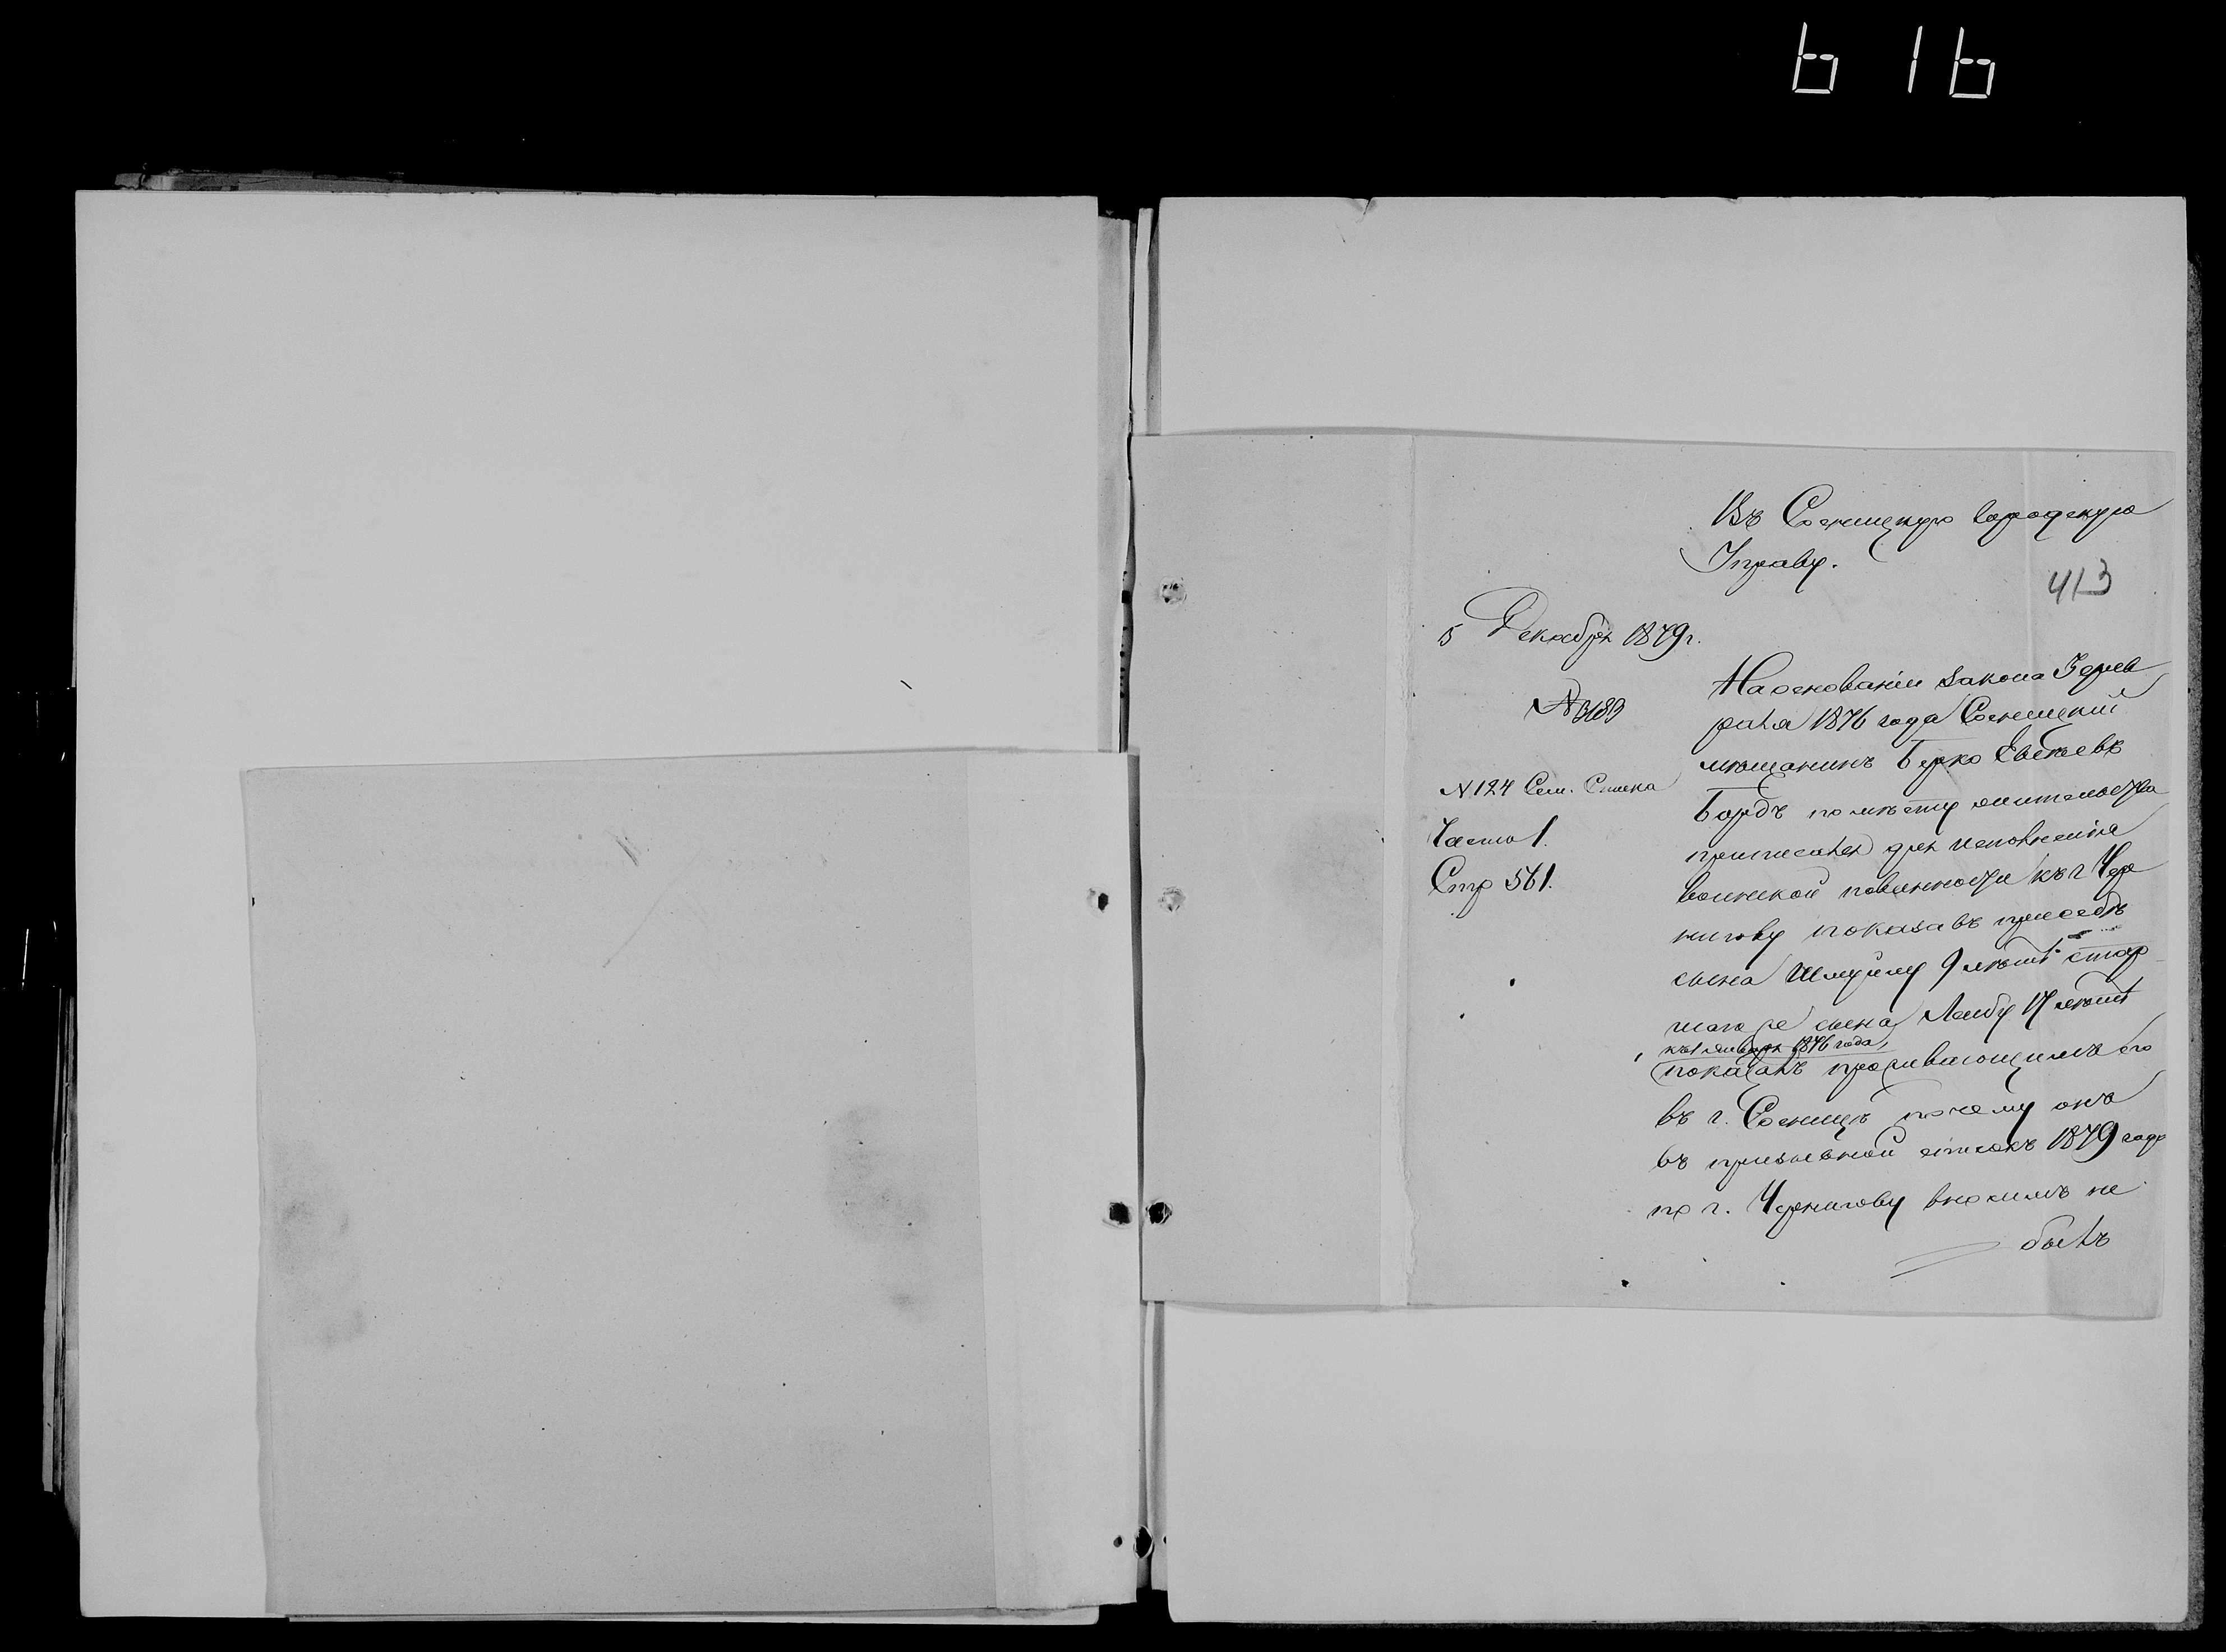 616
Въ Сосницкую Городскую
Управу.
413
5 Декабря 1879 г.
№ 3183
№ 124 Сем. Списка
Часть 1.
Стр 561.
На основаніи закона Февр
раля 1876 года Сосницкій
мѣщанинъ Берко Евсѣевъ
Бордъ по мѣсту жительства
приписался для исполненія
воинской повинности къ г Чер
нигову показавъ при себѣ
сына Шмуйлу 9 лѣтъ стар
шаго же сына Лейбу 17 лѣтъ
къ 1 января 1876 года,
показалъ проживающимъ его
въ г. Сосницѣ почему онъ
въ призывной списокъ 1879 года
по г. Чернигову вносимъ не
былъ